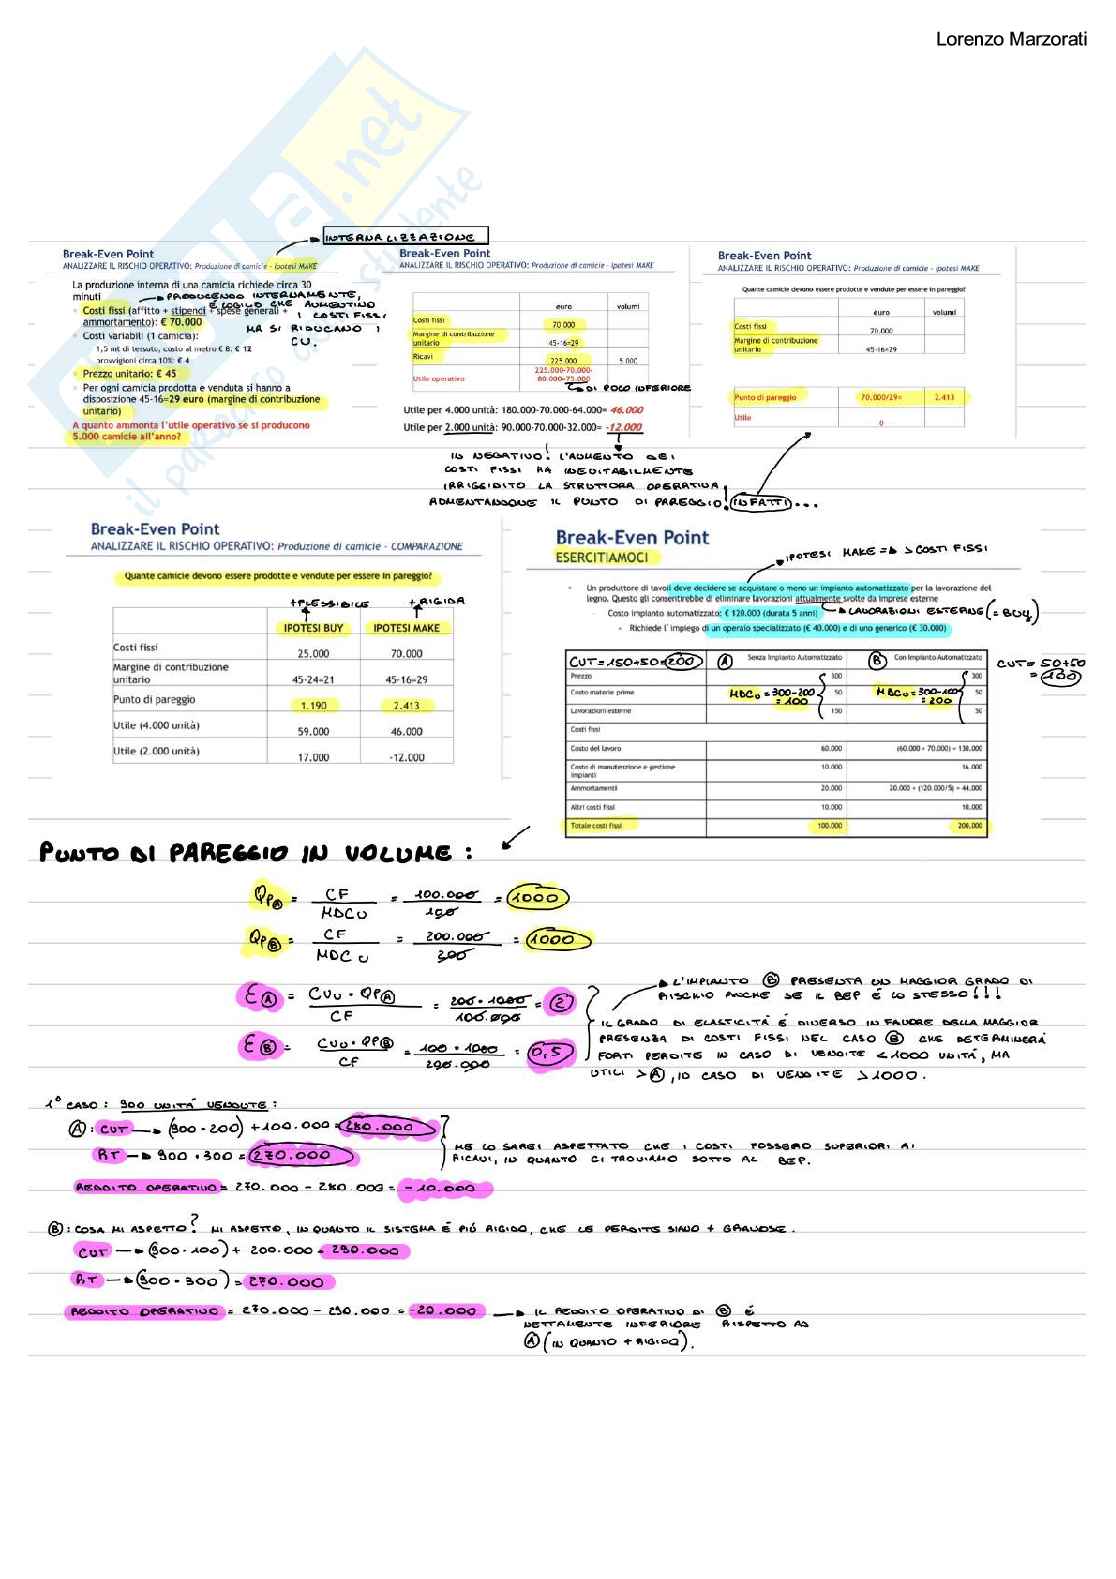 Lorenzo Marzorati
INTERNALIZZAZIONE
Break-Even Point
ANALIZZARE IL RISCHIO OPERATIVO: Produzione di camicie - ipotesi MAKE
La produzione interna di una camicia richiede circa 30
minuti
PRODUCENDO INTERNAMENTE,
È LOGICO CHE AUMENTINO
I COSTI FISSI
MA SI RIDUCANO I
CU.
Costi fissi (affitto + stipendi + spese generali +
ammortamento): € 70.000
Costi variabili (1 camicia):
1,5 mt di tessuto, costo al metro € 8: € 12
provvigioni circa 10%: € 4
Prezzo unitario: € 45
Per ogni camicia prodotta e venduta si hanno a
disposizione 45-16=29 euro (margine di contribuzione
unitario)
A quanto ammonta l'utile operativo se si producono
5.000 camicie all'anno?
Break-Even Point
ANALIZZARE IL RISCHIO OPERATIVO: Produzione di camicie - ipotesi MAKE
euro volumi
Costi fissi 70.000
Margine di contribuzione
unitario 45-16=29
Ricavi 225.000 5.000
Utile operativo 225.000-70.000-
80.000=75.000
DI POCO INFERIORE
Utile per 4.000 unità: 180.000-70.000-64.000= 46.000
Utile per 2.000 unità: 90.000-70.000-32.000= -12.000
IN NEGATIVO! L'AUMENTO DEI
COSTI FISSI HA INEVITABILMENTE
IRRIGIDITO LA STRUTTURA OPERATIVA,
AUMENTANDONE IL PUNTO DI PAREGGIO! INFATTI...
Break-Even Point
ANALIZZARE IL RISCHIO OPERATIVO: Produzione di camicie - ipotesi MAKE
Quante camicie devono essere prodotte e vendute per essere in pareggio?
euro volumi
Costi fissi 70.000
Margine di contribuzione
unitario 45-16=29
Punto di pareggio 70.000/29= 2.413
Utile 0
Break-Even Point
ANALIZZARE IL RISCHIO OPERATIVO: Produzione di camicie - COMPARAZIONE
Quante camicie devono essere prodotte e vendute per essere in pareggio?
+FLESSIBILE +RIGIDA
IPOTESI BUY IPOTESI MAKE
Costi fissi 25.000 70.000
Margine di contribuzione
unitario 45-24=21 45-16=29
Punto di pareggio 1.190 2.413
Utile (4.000 unità) 59.000 46.000
Utile (2.000 unità) 17.000 -12.000
Break-Even Point
ESERCITIAMOCI
IPOTESI MAKE => > COSTI FISSI
Un produttore di tavoli deve decidere se acquistare o meno un impianto automatizzato per la lavorazione del
legno. Questo gli consentirebbe di eliminare lavorazioni attualmente svolte da imprese esterne
Costo impianto automatizzato: € 120.000 (durata 5 anni) LAVORAZIONI ESTERNE (= BUY)
Richiede l'impiego di un operaio specializzato (€ 40.000) e di uno generico (€ 30.000)
CUT=150+50=200 A Senza Impianto Automatizzato B Con Impianto Automatizzato
CUT=50+50
=100
Prezzo 300 300
Costo materie prime MDCU=300-200 50 MDCU=300-100 50
=100 =200
Lavorazioni esterne 150 50
Costi fissi
Costo del lavoro 60.000 (60.000 + 70.000) = 130.000
Costo di manutenzione e gestione
impianti 10.000 16.000
Ammortamenti 20.000 20.000 + (120.000/5) = 44.000
Altri costi fissi 10.000 10.000
Totale costi fissi 100.000 200.000
PUNTO DI PAREGGIO IN VOLUME:
QPA = CF / MDCU = 100.000 / 100 = 1000
QPB = CF / MDCU = 200.000 / 200 = 1000
EA = CVU · QPA / CF = 200 · 1000 / 100.000 = 2
EB = CVU · QPB / CF = 100 · 1000 / 200.000 = 0,5
L'IMPIANTO B PRESENTA UN MAGGIOR GRADO DI
RISCHIO ANCHE SE IL BEP È LO STESSO!!!
IL GRADO DI ELASTICITÀ È DIVERSO IN FAVORE DELLA MAGGIOR
PRESENZA DI COSTI FISSI NEL CASO B CHE DETERMINERÀ
FORTI PERDITE IN CASO DI VENDITE <1000 UNITÀ, MA
UTILI > A, IN CASO DI VENDITE >1000.
1° CASO: 900 UNITÀ VENDUTE:
A: CUT → (900·200) + 100.000 = 280.000
RT → 900·300 = 270.000
ME LO SAREI ASPETTATO CHE I COSTI FOSSERO SUPERIORI AI
RICAVI, IN QUANTO CI TROVIAMO SOTTO AL BEP.
REDDITO OPERATIVO = 270.000 - 280.000 = -10.000
B: COSA MI ASPETTO? MI ASPETTO, IN QUANTO IL SISTEMA È PIÙ RIGIDO, CHE LE PERDITE SIANO + GRAVOSE.
CUT → (900·100) + 200.000 = 290.000
RT → (900·300) = 270.000
REDDITO OPERATIVO = 270.000 - 290.000 = -20.000 → IL REDDITO OPERATIVO DI B È
NETTAMENTE INFERIORE RISPETTO AD
A (IN QUANTO +RIGIDO).